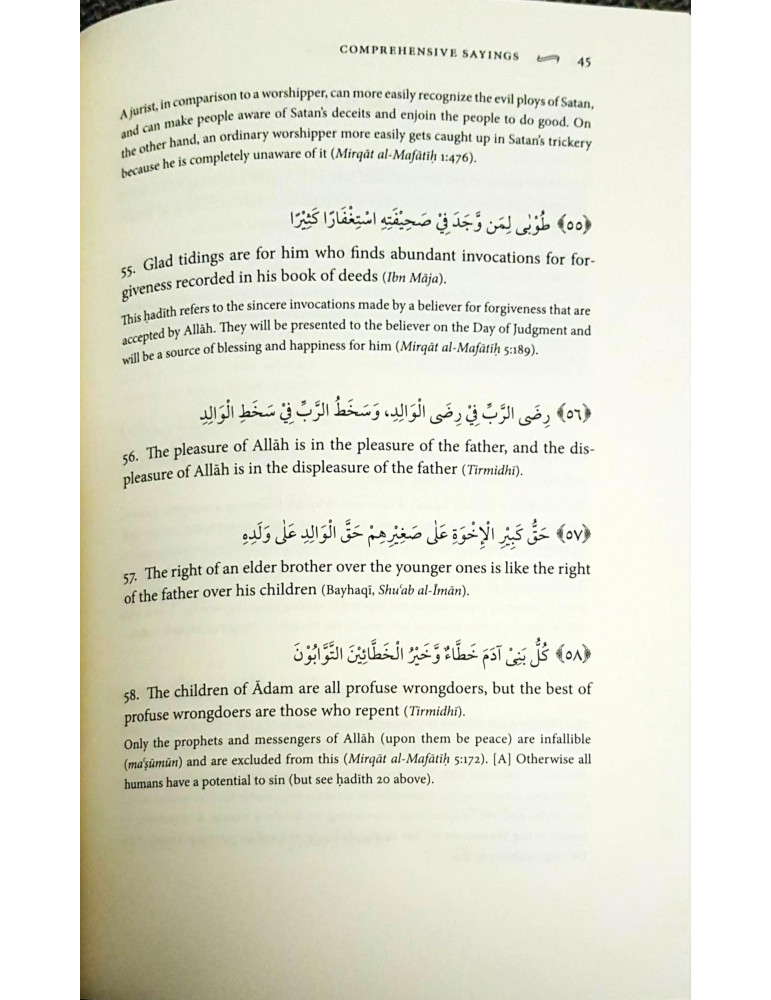 COMPREHENSIVE SAYINGS 45
A jurist, in comparison to a worshipper, can more easily recognize the evil ploys of Satan,
and can make people aware of Satan's deceits and enjoin the people to do good. On
the other hand, an ordinary worshipper more easily gets caught up in Satan's trickery
because he is completely unaware of it (Mirqāt al-Mafātīḥ 1:476).
﴿٥٥﴾ طُوْبٰى لِمَن وَّجَدَ فِيْ صَحِيْفَتِهِ اسْتِغْفَارًا كَثِيْرًا
55. Glad tidings are for him who finds abundant invocations for for-
giveness recorded in his book of deeds (Ibn Māja).
This ḥadīth refers to the sincere invocations made by a believer for forgiveness that are
accepted by Allāh. They will be presented to the believer on the Day of Judgment and
will be a source of blessing and happiness for him (Mirqāt al-Mafātīḥ 5:189).
﴿٥٦﴾ رِضَى الرَّبِّ فِيْ رِضَى الْوَالِدِ، وَسَخَطُ الرَّبِّ فِيْ سَخَطِ الْوَالِدِ
56. The pleasure of Allāh is in the pleasure of the father, and the dis-
pleasure of Allāh is in the displeasure of the father (Tirmidhī).
﴿٥٧﴾ حَقُّ كَبِيْرِ الْإِخْوَةِ عَلٰى صَغِيْرِهِمْ حَقَّ الْوَالِدِ عَلٰى وَلَدِهِ
57. The right of an elder brother over the younger ones is like the right
of the father over his children (Bayhaqī, Shuʿab al-Īmān).
﴿٥٨﴾ كُلُّ بَنِيْ آدَمَ خَطَّاءٌ وَّخَيْرُ الْخَطَّائِيْنَ التَّوَّابُوْنَ
58. The children of Ādam are all profuse wrongdoers, but the best of
profuse wrongdoers are those who repent (Tirmidhī).
Only the prophets and messengers of Allāh (upon them be peace) are infallible
(maʿṣūmūn) and are excluded from this (Mirqāt al-Mafātīḥ 5:172). [A] Otherwise all
humans have a potential to sin (but see ḥadīth 20 above).